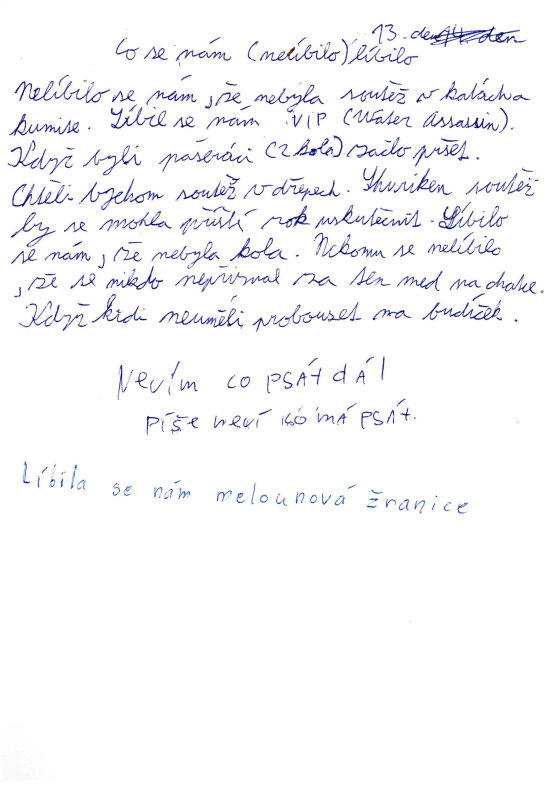 13. den 14. den
Co se nám (nelíbilo) líbilo
Nelíbilo se nám, že nebyla soutěž v katách a
kumite. Líbil se nám VIP (Water Assassin).
Když byli pašeráci (2 kola) začlo pršet.
Chtěli bychom soutěž v dřepech. Shuriken soutěž
by se mohla příští rok uskutečnit. Líbilo
se nám, že nebyla kola. Nekomu se nelíbilo
, že se nikdo nepřiznal za ten med na chatce.
Když kidi neuměli probouzet na budíček.
Nevím co psát dál
píše neví co má psát.
Líbila se nám melounová žranice